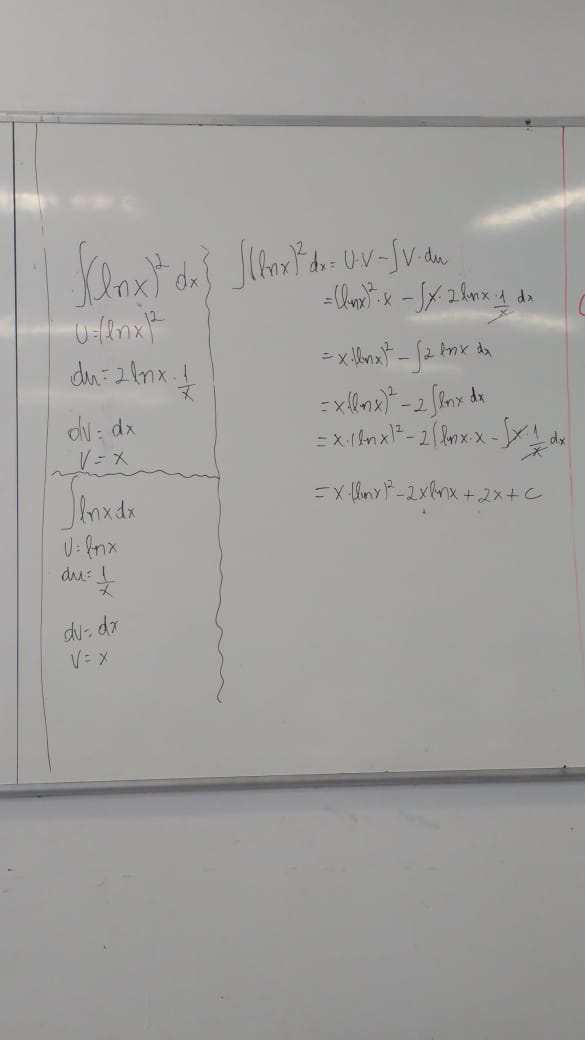 ∫(lnx)² dx
U=(lnx)²
du=2lnx·1/x
dv=dx
V=x
∫lnxdx
U=lnx
du=1/x
dv=dx
V=x
∫(lnx)² dx=U·V-∫V·du
=(lnx)²·x-∫x·2lnx·1/x dx
=x·(lnx)²-∫2lnx dx
=x(lnx)²-2∫lnx dx
=x·(lnx)²-2(lnx·x-∫x·1/x dx
=x·(lnx)²-2xlnx+2x+C